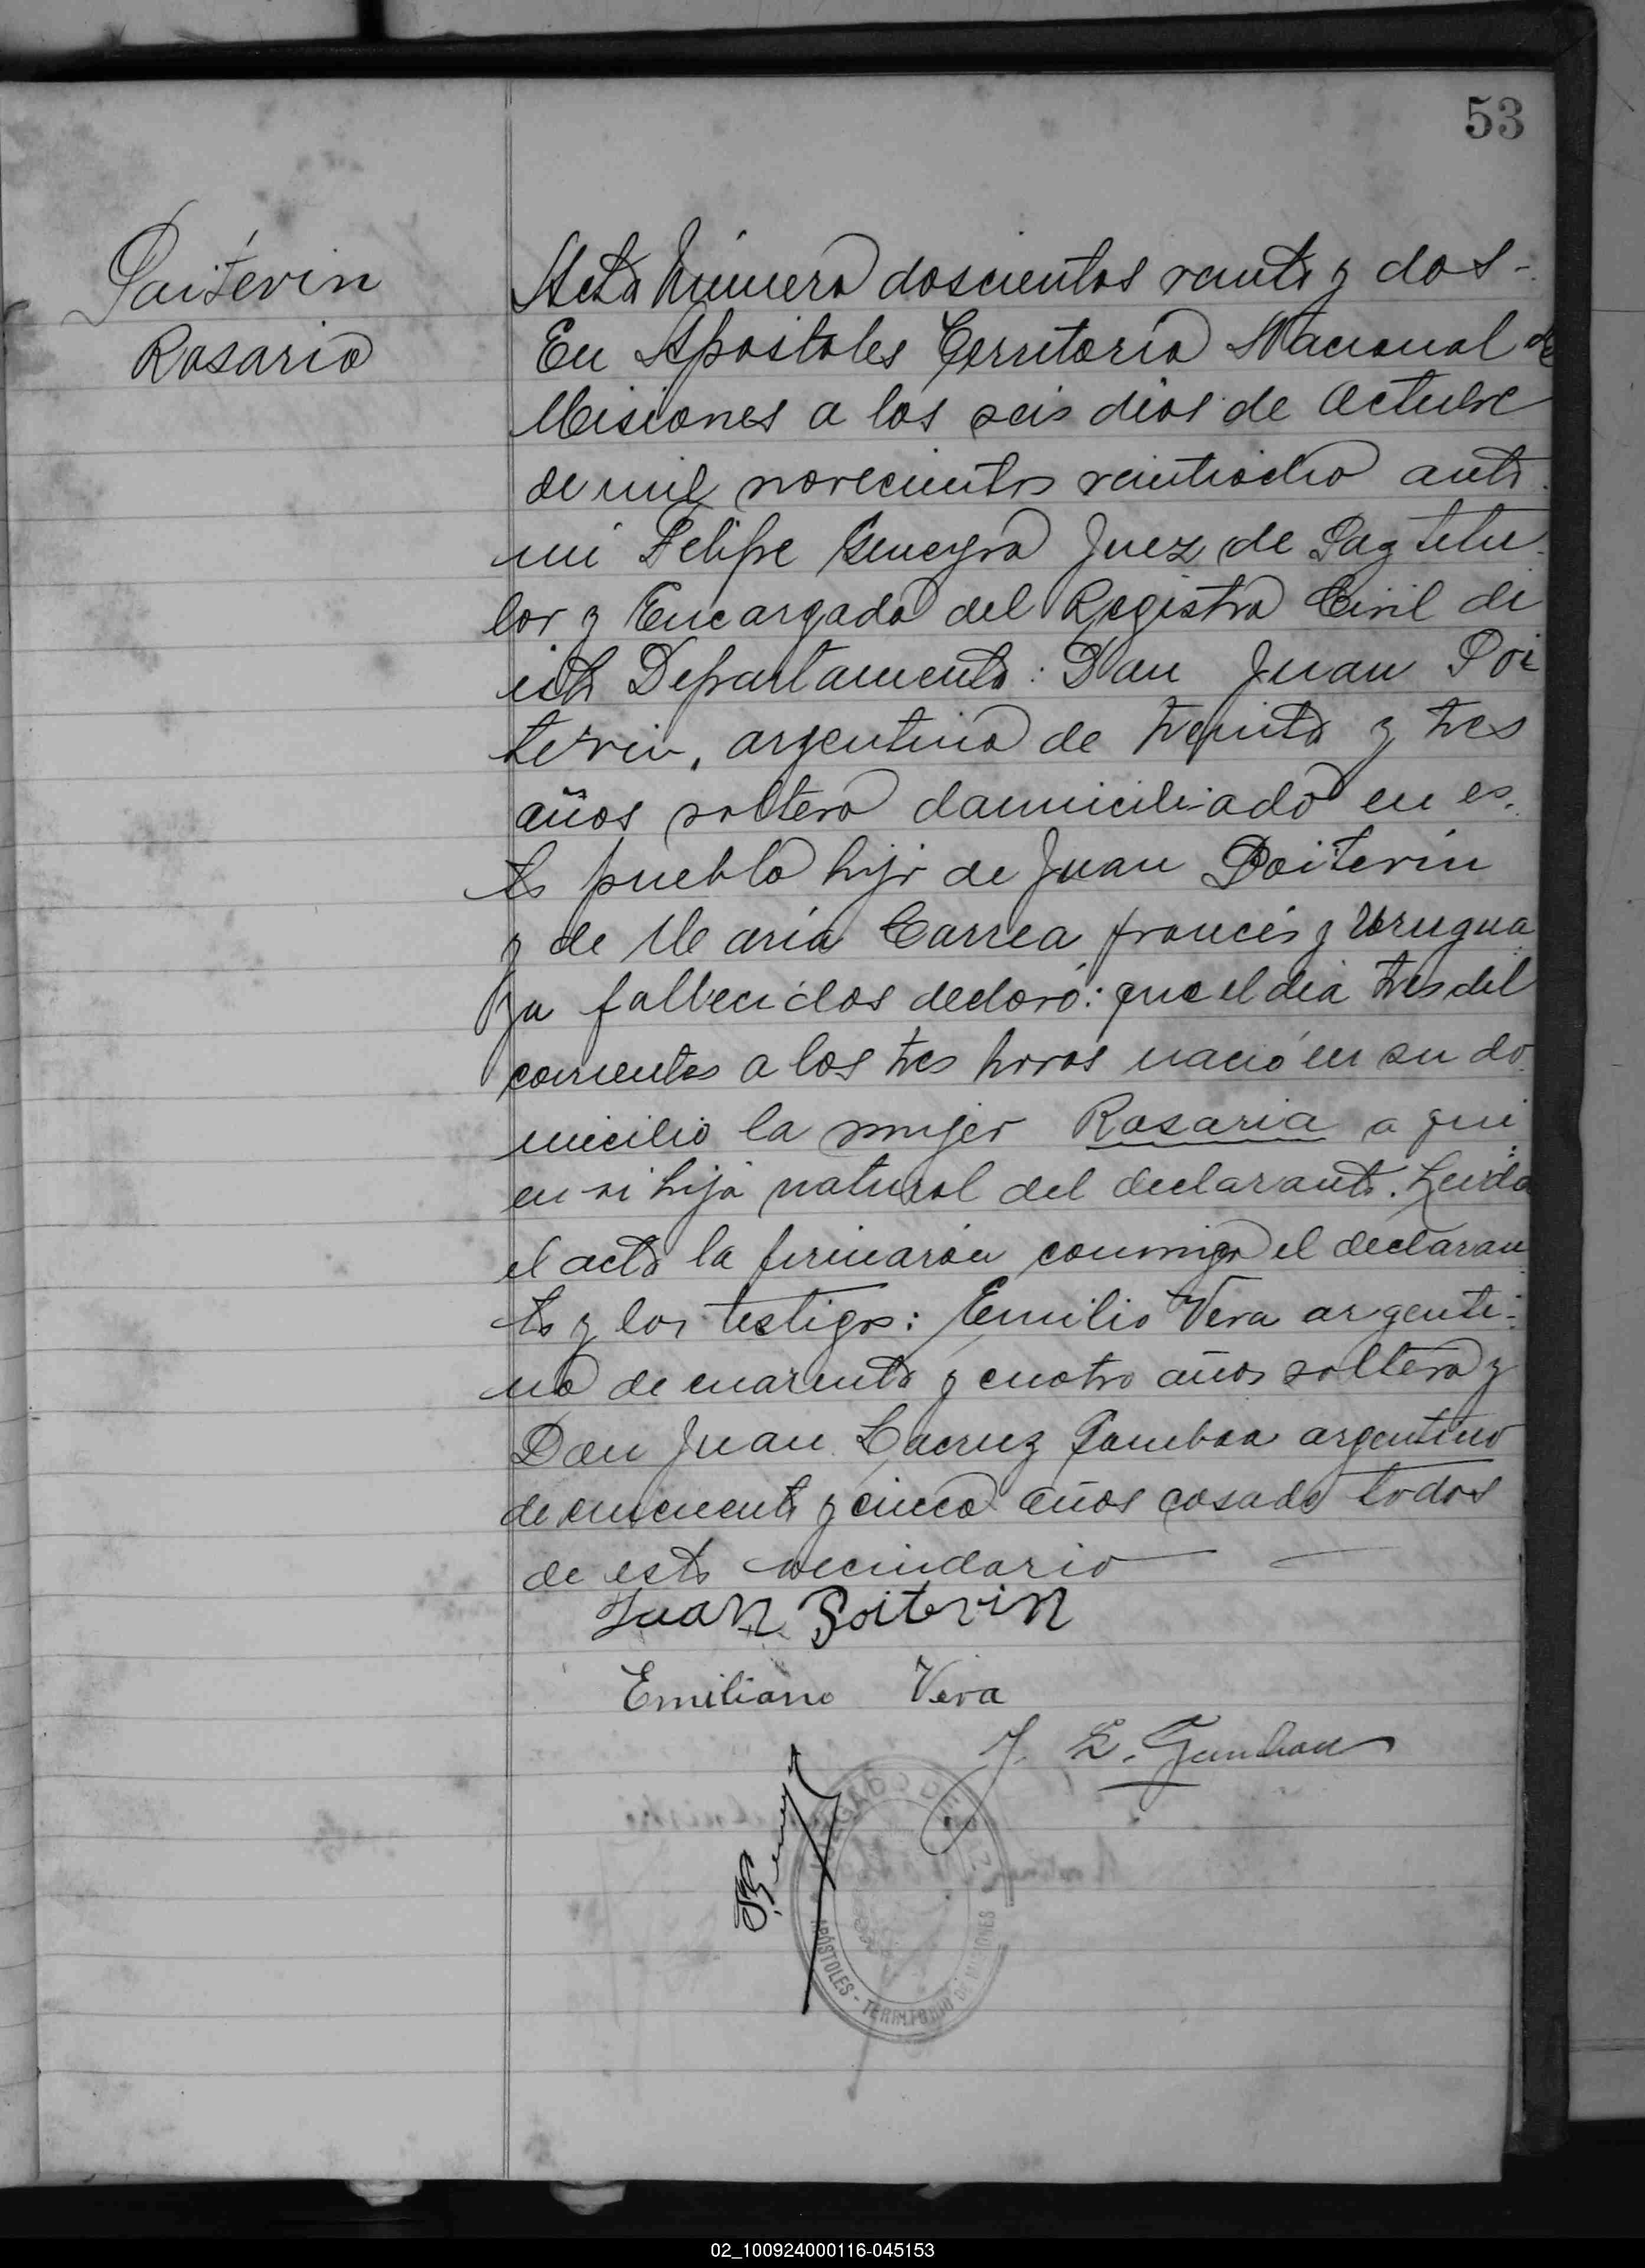 53
Poiterin
Rosario
Acta Número doscientos veinte y dos-
En Apostoles Territorio Nacional de
Misiones a los seis dias de Octubre
de mil novecientos veintiocho ante
mi Felipe Juez de Paz titu
lar y Encargado del Registro Civil de
este Departamento: Don Juan Poi
terin, argentino de treinta y tres
años soltero domiciliado en es
te pueblo hijo de Juan Poiterin
y de Maria Correa francés y Urugua
ya fallecidos declaró: que el dia tres del
corriente a las tres horas nació en su do
micilio la mujer Rosaria a qui
en si hija natural del declarante. Leida
el acta la firmaron conmigo el declaran
te y los testigos: Emilio Vera argenti-
no de cuarenta y cuatro años soltero y
Don Juan Lacruz Gamboa argentino
de cincuenta y cinco años casado todos
de este vecindario
Juan Poiterin
Emiliano Vera
J. L. Gamboa
JUZGADO DE PAZ
APÓSTOLES - TERRITORIO DE MISIONES
02_100924000116-045153